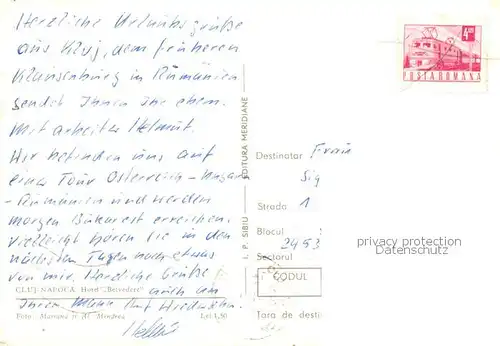 Herzliche Urlaubsgrüße
aus Kluj, dem früheren
Klausenburg in Rumänien
sendet Ihnen Ihr ehem.
Mitarbeiter Helmut.
Wir befinden uns auf
einer Tour Österreich - Ungarn
- Rumänien und werden
morgen Bukarest erreichen.
Vielleicht hören Sie in den
nächsten Tagen noch etwas
von mir. Herzliche Grüße
CLUJ-NAPOCA Hotel "Belvedere" auch an
Ihren Mann. Auf Wiedersehen
Foto: Mariana și Al. Mendrea Lei 1,50
Helmut
I. P. SIBIU — EDITURA MERIDIANE
4 LEI
POSTA ROMANA
Destinatar Frau
Sig
Strada 1
Blocul
2953
Sectorul
CODUL
Țara de desti
privacy protection
www.delcampe.net